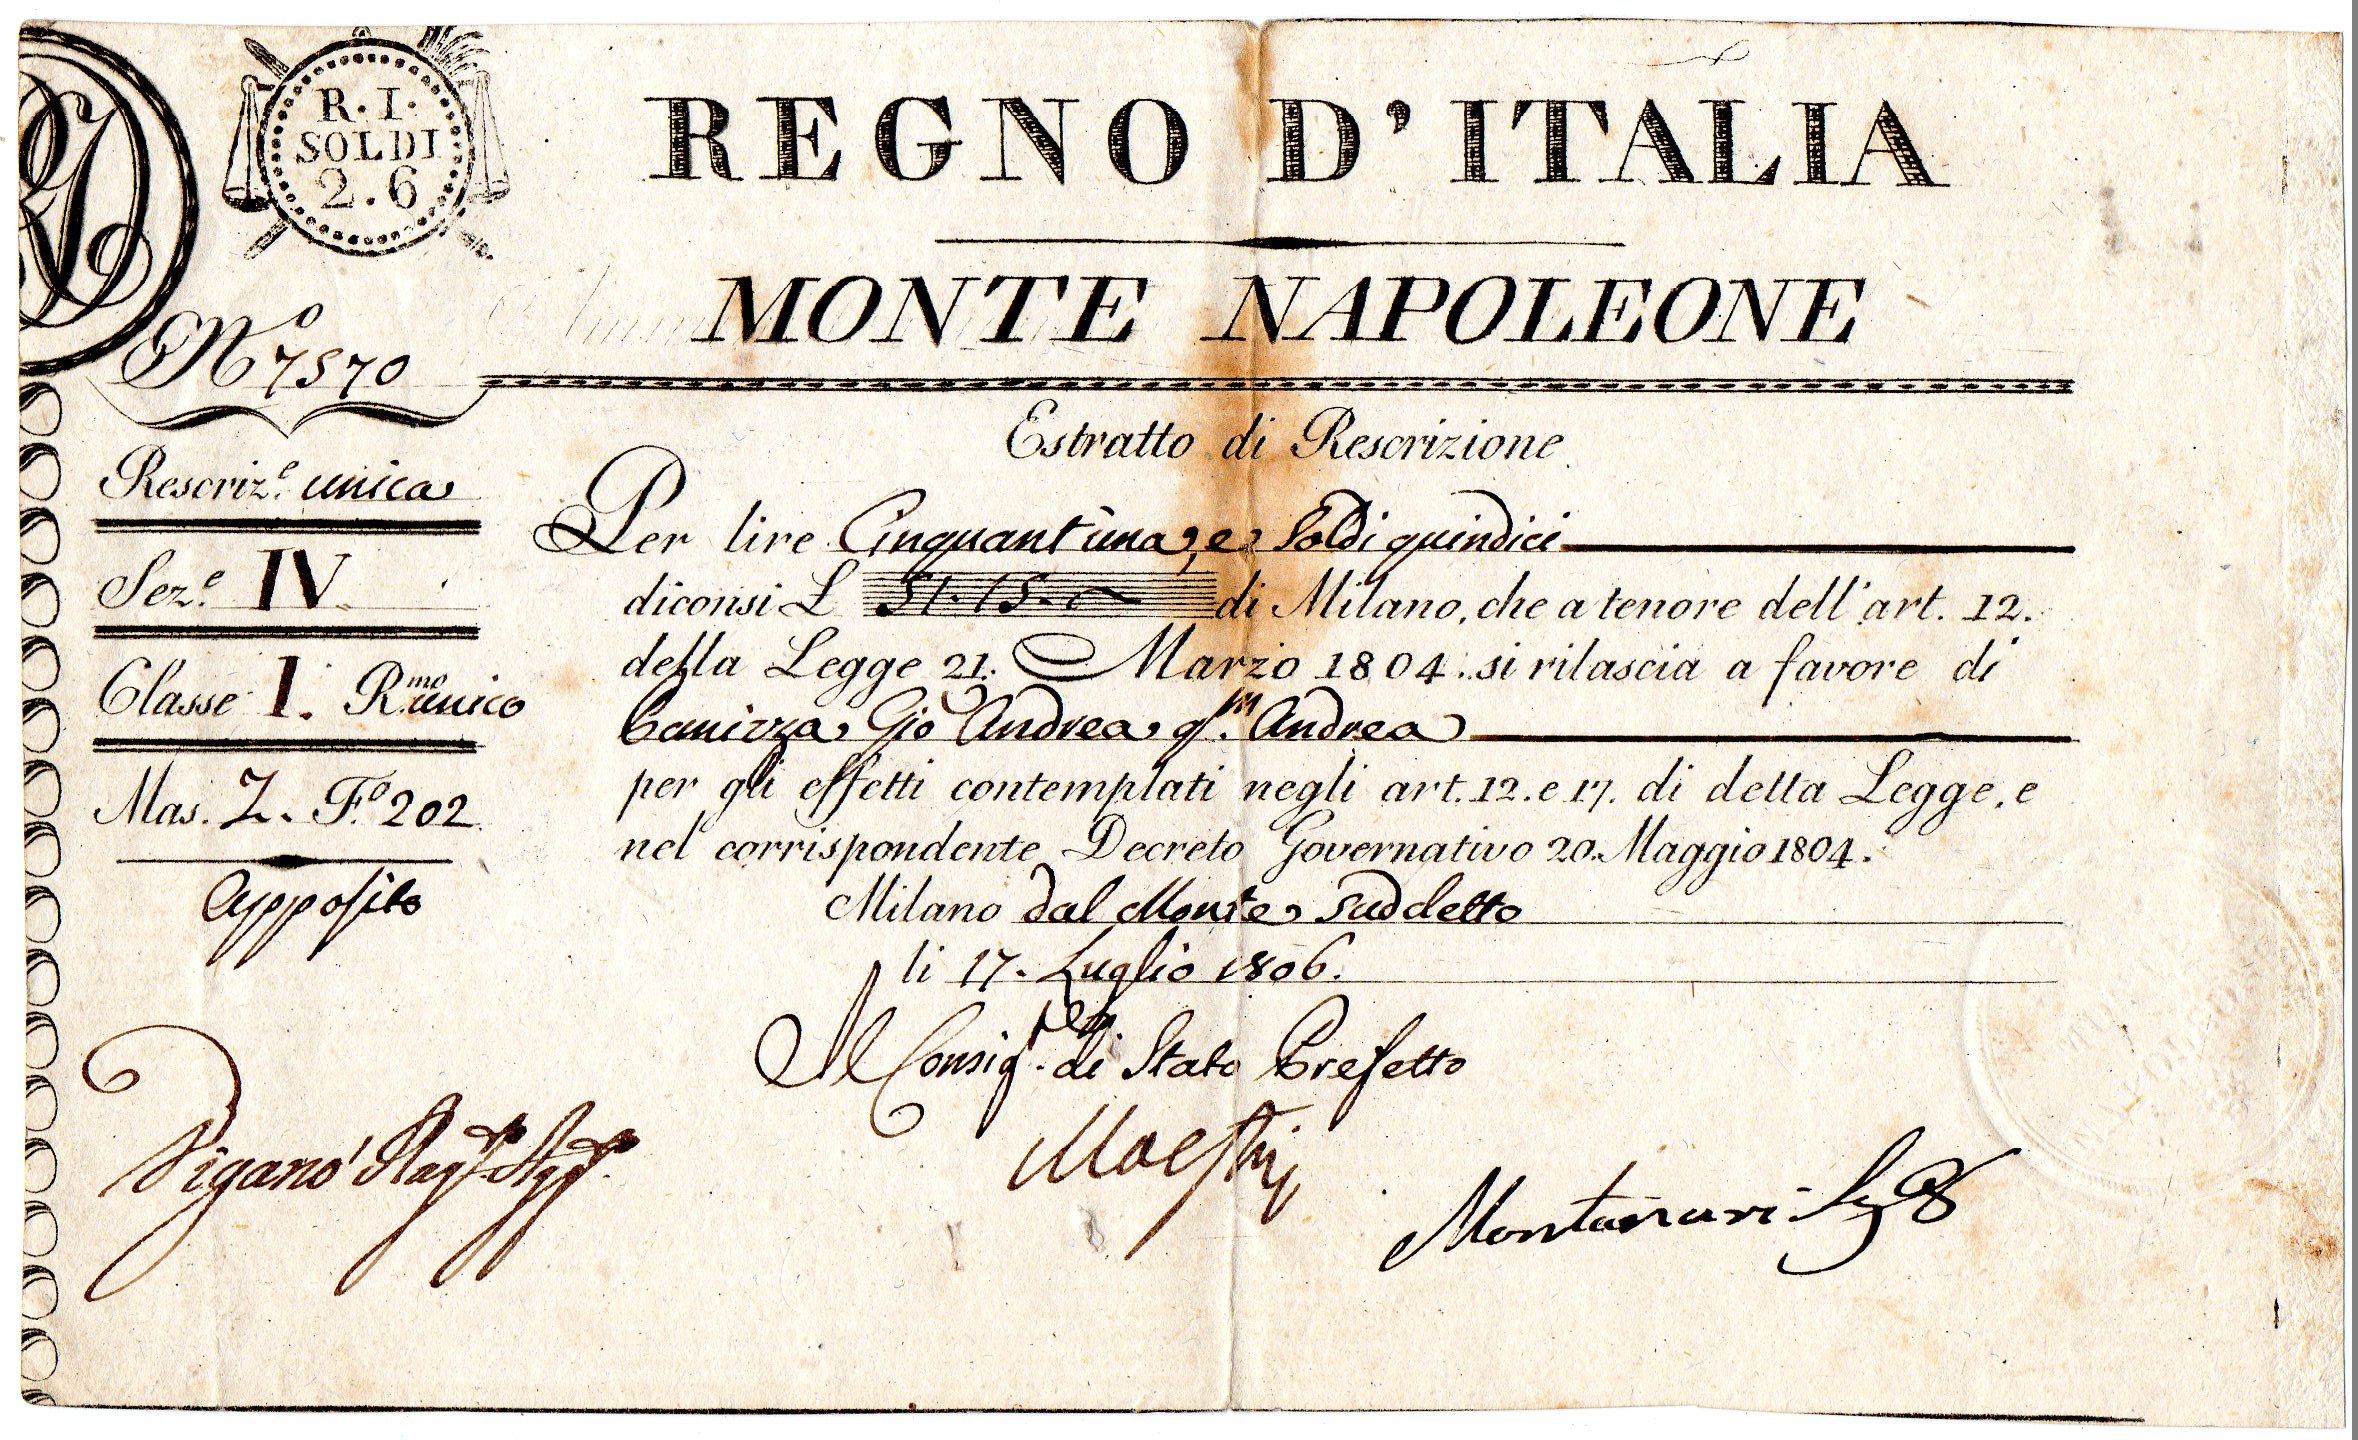 R. I.
SOLDI
2.6
REGNO D'ITALIA
MONTE NAPOLEONE
N.o 7570
Estratto di Rescrizione
Rescriz.e unica
Per lire Cinquant'una, e Soldi quindici
Sez.e IV
diconsi L 51.15.- di Milano, che a tenore dell'art. 12.
Classe I. R.mo unico
della Legge 21. Marzo 1804. si rilascia a favore di
Canizza Gio Andrea q.m Andrea
Mas. Z. F.o 202
per gli effetti contemplati negli art. 12. e 17. di detta Legge, e
nel corrispondente Decreto Governativo 20. Maggio 1804.
Apposito
Milano dal Monte suddetto
li 17. Luglio 1806.
Il Consig.re di Stato Prefetto
Viganò
Maestri